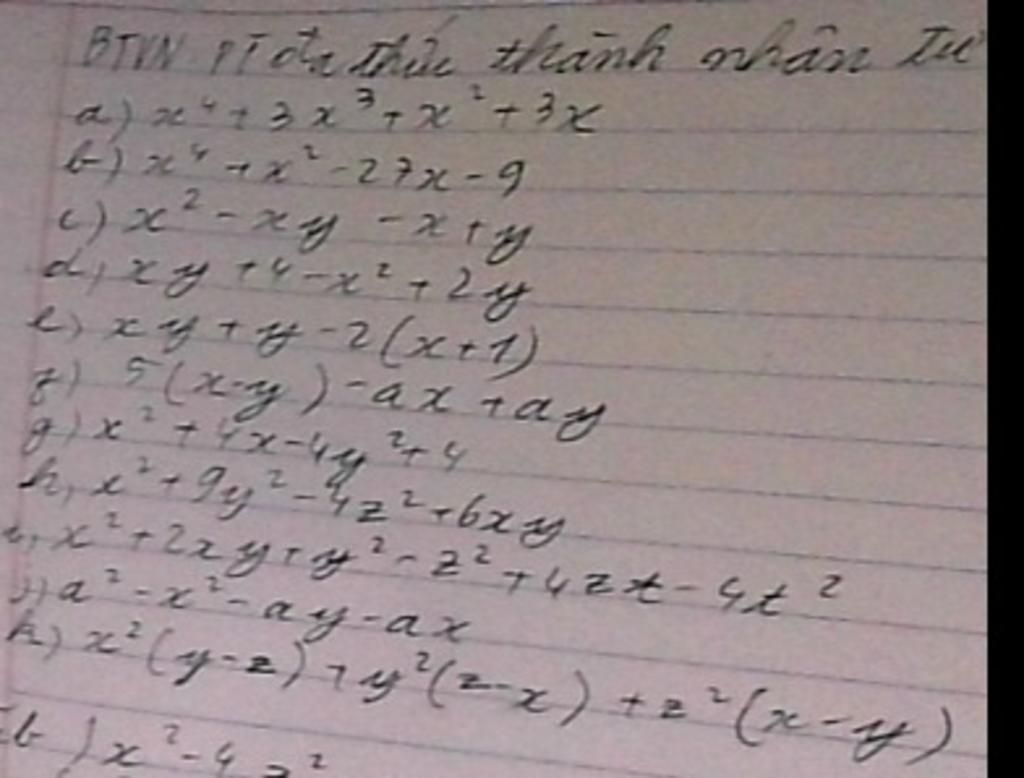 BTVN PT đa thức thành nhân tử
a) x⁴ + 3x³ + x² + 3x
b) x⁴ + x² - 27x - 9
c) x² - xy - x + y
d) xy + 4 - x² + 2y
e) xy + y - 2(x+1)
f) 5(x-y) - ax + ay
g) x² + 4x - 4y² + 4
h) x² + 9y² - 4z² + 6xy
i) x² + 2xy + y² - z² + 4zt - 4t²
j) a² - x² - ay - ax
k) x²(y-z) + y²(z-x) + z²(x-y)
b) x² - 4